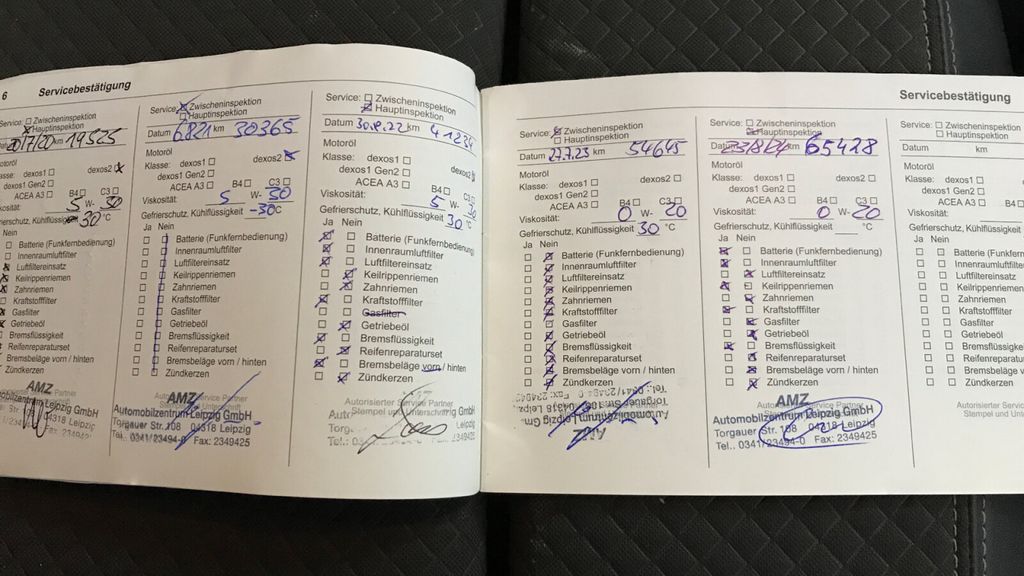 6 Servicebestätigung
Service: Zwischeninspektion
Hauptinspektion
20/7/20 km 19525
Motoröl
Klasse: dexos1 dexos2
dexos1 Gen2
ACEA A3 B4 C3
Viskosität: 5 W- 30
Gefrierschutz, Kühlflüssigkeit
30 °C
Ja Nein
Batterie (Funkfernbedienung)
Innenraumluftfilter
Luftfiltereinsatz
Keilrippenriemen
Zahnriemen
Kraftstofffilter
Gasfilter
Getriebeöl
Bremsflüssigkeit
Reifenreparaturset
Bremsbeläge vorn / hinten
Zündkerzen
AMZ
Leipzig GmbH
04318 Leipzig
Service: Zwischeninspektion
Hauptinspektion
Datum 6821 km 30365
Motoröl
Klasse: dexos1 dexos2
dexos1 Gen2
ACEA A3 B4 C3
Viskosität: 5 W- 30
Gefrierschutz, Kühlflüssigkeit -30 °C
Ja Nein
Batterie (Funkfernbedienung)
Innenraumluftfilter
Luftfiltereinsatz
Keilrippenriemen
Zahnriemen
Kraftstofffilter
Gasfilter
Getriebeöl
Bremsflüssigkeit
Reifenreparaturset
Bremsbeläge vorn / hinten
Zündkerzen
AMZ
Automobilzentrum Leipzig GmbH
Torgauer Str. 108 04318 Leipzig
Tel. 0341/23494-0 Fax: 2349425
Service: Zwischeninspektion
Hauptinspektion
Datum 30.8.22 km 41234
Motoröl
Klasse: dexos1 dexos2
dexos1 Gen2
ACEA A3 B4 C3
Viskosität: 5 W- 30
Gefrierschutz, Kühlflüssigkeit 30 °C
Ja Nein
Batterie (Funkfernbedienung)
Innenraumluftfilter
Luftfiltereinsatz
Keilrippenriemen
Zahnriemen
Kraftstofffilter
Gasfilter
Getriebeöl
Bremsflüssigkeit
Reifenreparaturset
Bremsbeläge vorn / hinten
Zündkerzen
Autorisierter Service Partner
Stempel und Unterschrift
Servicebestätigung
Service: Zwischeninspektion
Hauptinspektion
Datum 27.7.23 km 54645
Motoröl
Klasse: dexos1 dexos2
dexos1 Gen2
ACEA A3 B4 C3
Viskosität: 0 W- 20
Gefrierschutz, Kühlflüssigkeit 30 °C
Ja Nein
Batterie (Funkfernbedienung)
Innenraumluftfilter
Luftfiltereinsatz
Keilrippenriemen
Zahnriemen
Kraftstofffilter
Gasfilter
Getriebeöl
Bremsflüssigkeit
Reifenreparaturset
Bremsbeläge vorn / hinten
Zündkerzen
Service: Zwischeninspektion
Hauptinspektion
Datum km 65428
Motoröl
Klasse: dexos1 dexos2
dexos1 Gen2
ACEA A3 B4 C3
Viskosität: 0 W- 20
Gefrierschutz, Kühlflüssigkeit °C
Ja Nein
Batterie (Funkfernbedienung)
Innenraumluftfilter
Luftfiltereinsatz
Keilrippenriemen
Zahnriemen
Kraftstofffilter
Gasfilter
Getriebeöl
Bremsflüssigkeit
Reifenreparaturset
Bremsbeläge vorn / hinten
Zündkerzen
AMZ
Automobilzentrum Leipzig GmbH
Torgauer Str. 108 04318 Leipzig
Tel.. 0341/23494-0 Fax: 2349425
Service: Zwischeninspektion
Hauptinspektion
Datum km
Motoröl
Klasse: dexos1
dexos1 Gen2
ACEA A3 B4
Viskosität: W-
Gefrierschutz, Kühlflüssigkeit
Ja Nein
Batterie (Funkfern
Innenraumluftfilter
Luftfiltereinsatz
Keilrippenriemen
Zahnriemen
Kraftstofffilter
Gasfilter
Getriebeöl
Bremsflüssigkeit
Reifenreparaturset
Bremsbeläge vorn
Zündkerzen
Autorisierter Se
Stempel und Un